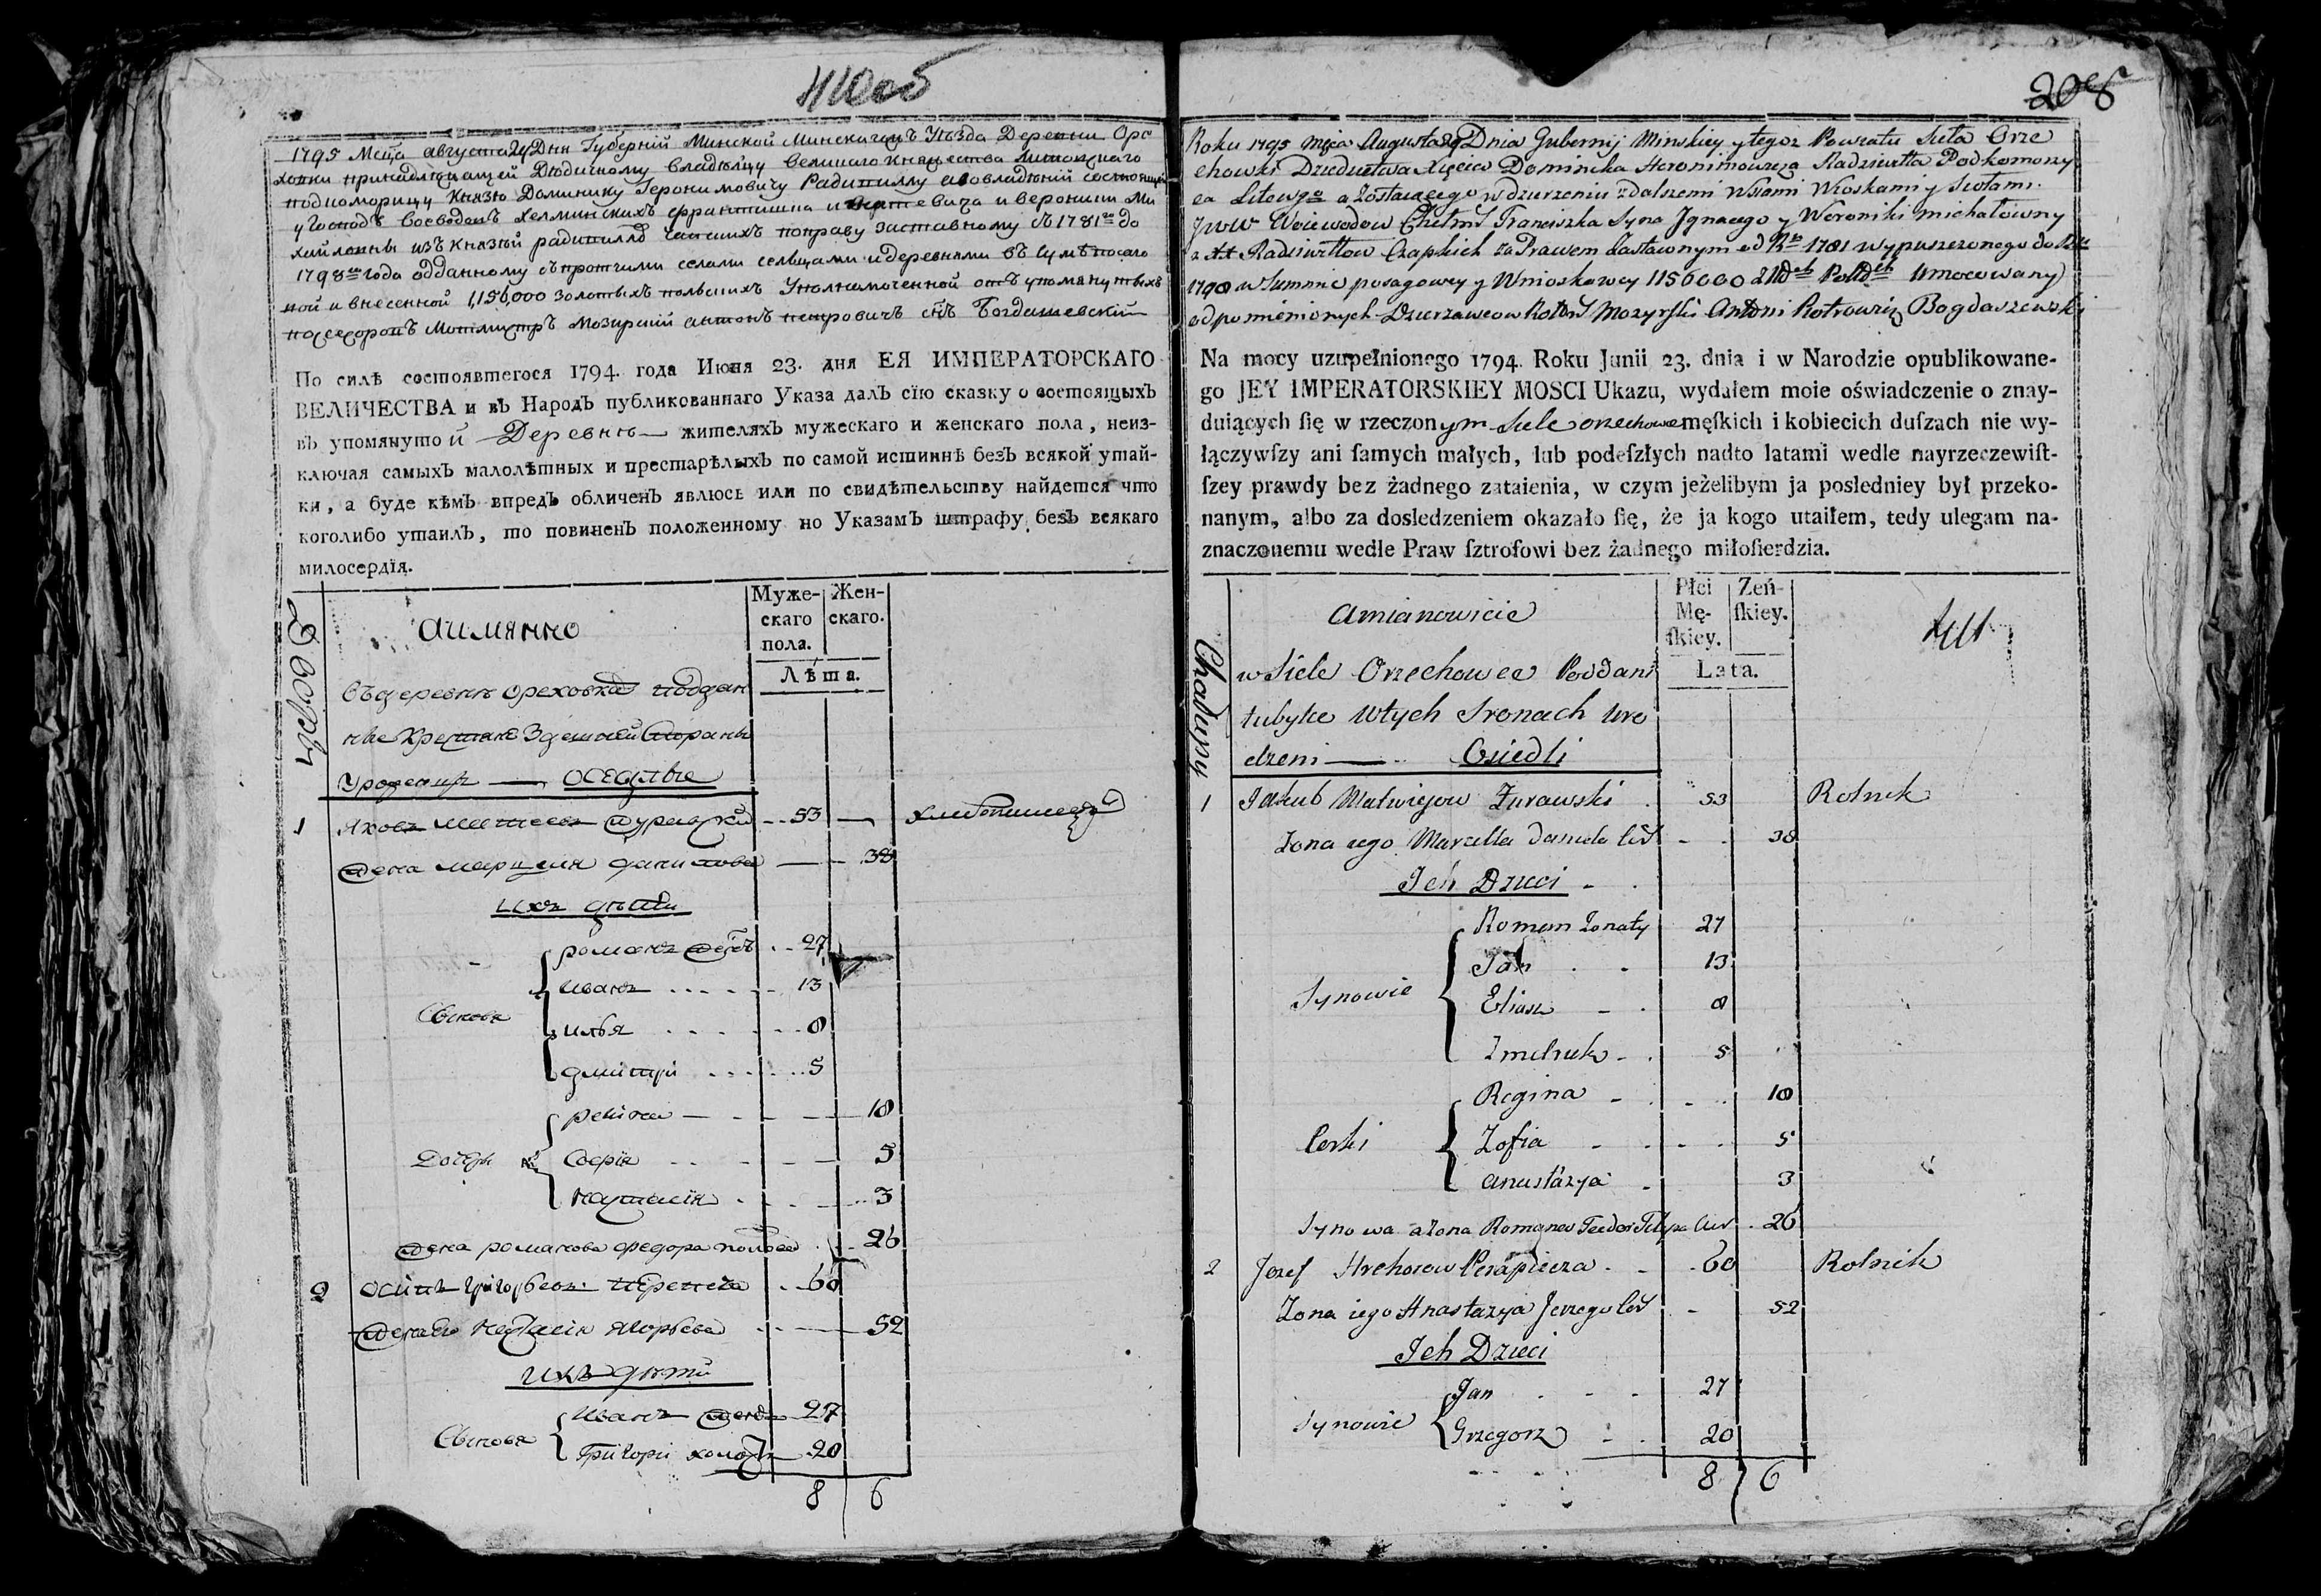 208
1795 Мсца августа 29 Дня Губерній Минской Минскагожъ Уѣзда Деревни Орѣ
ховки принадлежащей Дѣдичному владѣльцу великаго княжества Литовскаго
подкоморицу Князю Доминику Героnимовичу Радзивиллу а во владѣніи состоящей
у Господъ воеводовъ Хелминскихъ Францишка и вероники Ми
хайловны изъ Князей радзивилловъ Чапскихъ поправу заставному съ 1781го до
1798го года одданному съ протчими селами сельцами и деревнями въ сумѣ посаго
вой и внесенной 1,156,000 золотыхъ польшихъ Уполномоченной отъ упомянутыхъ
посесоровъ Мозирский антонъ петровичъ снъ Богдашевскій
По силѣ состоявшегося 1794. года Июня 23. дня ЕЯ ИМПЕРАТОРСКАГО
ВЕЛИЧЕСТВА и въ Народъ публикованнаго Указа далъ сїю сказку о состоящыхъ
въ упомянутой Деревнѣ жителяхъ мужескаго и женскаго пола, неиз-
ключая самыхъ малолѣтных и престарѣлыхъ по самой истиннѣ безъ всякой утай-
ки, а буде кѣмъ впредь обличенъ явлюсь или по свидѣтельству найдется что
коголибо утаилъ, то повиненъ положенному по Указамъ штрафу безъ всякаго
милосердїя.
Дворы
аимянно
Муже- скаго пола.
Жен- скаго.
Лѣта.
Въ деревнѣ ореховкѣ поддан
ные Крестяне Здешней Стораны
Уроженцы — осѣдлые
1 Яковъ Матвеевъ журавский 53 хлебопашецъ
жена марцеля данилова 38
ихъ дѣти
Сыновя
романъ женъ 27
иванъ 13
илья 8
дмитри 5
Дочери
регина 18
Софія 5
настасія 3
жена романова федора 26
2 осипъ григорьевъ 60
жена его настасія Яворьева 52
ихъ дѣти
Сыновя
иванъ женъ 27
Григори холостъ 20
8 6
Roku 1795 mca Augusta 29 Dnia Gubernij Minskiey y tegoż Powiatu Sieła Orze
chowki Dziedzictwa Xięcia Dominika Heronimowicza Radziwiłła Podkomorzy
ca Litewgo a Zostaiącego w dzierżeniu z dalszemi Wsiami Wioskami y Siołami
JWW Woiewodow Chełms Franciszka Syna Jgnacego y Weroniki Michałowny
z XX Radziwiłłow Czapskich za Prawem zastawnym od Rku 1781 wypuszczonego do Rku
1798 w Summie posagowey y Wnioskowey 1156000 Złdch Polldch Umocowany
od pomienionych Dzierżawcow Rotms Mozyrski Antoni Piotrowicz Bogdaszewski
Na mocy uzupełnionego 1794. Roku Junii 23. dnia i w Narodzie opublikowane-
go JEY IMPERATORSKIEY MOSCI Ukazu, wydałem moie oświadczenie o znay-
duiących ſię w rzeczonym Siele Orzechowce męſkich i kobiecich duſzach nie wy-
łączywſzy ani ſamych małych, lub podeſzłych nadto latami wedle nayrzeczewiſt-
ſzey prawdy bez żadnego zataienia, w czym jeżelibym ja posledniey był przeko-
nanym, albo za dosledzeniem okazało ſię, że ja kogo utaiłem, tedy ulegam na-
znaczonemu wedle Praw ſztrofowi bez żadnego miłoſierdzia.
Chałupy
Amianowicie
Płci Mę- ſkiey.
Zeń- ſkiey.
Lata.
w Siele Orzechowce Poddani
tubylce w tych Stronach uro
dzeni — Osiedli
1 Jakub Matwiejow Zurawski 53 Rolnik
Zona iego Marcella Daniela Cor 38
Jch Dzieci
Synowie
Roman Zonaty 27
Jan 13
Eliasz 8
Zmitruk 5
Corki
Regina 18
Zofia 5
Anastazya 3
Synowa a Zona Romanowa 26
2 Jozef Hrehorow 60 Rolnik
Zona iego Anastazya Jerzego Cor 52
Jch Dzieci
Synowie
Jan 27
Grzegorz 20
8 6